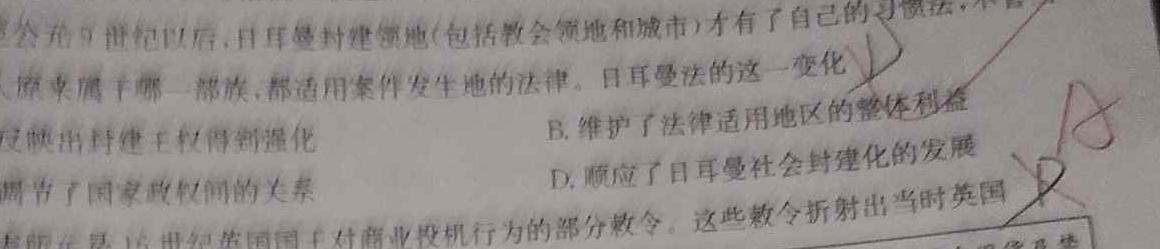 9世纪以后,日耳曼封建领地(包括教会领地和城市)才有了自己的习惯法,不管
人原来属于哪一部族,都适用案件发生地的法律。日耳曼法的这一变化
反映出封建王权得到强化
B. 维护了法律适用地区的整体利益
A
调节了国家政权间的关系
D. 顺应了日耳曼社会封建化的发展
是16世纪英国国王对商业投机行为的部分敕令。这些敕令折射出当时英国